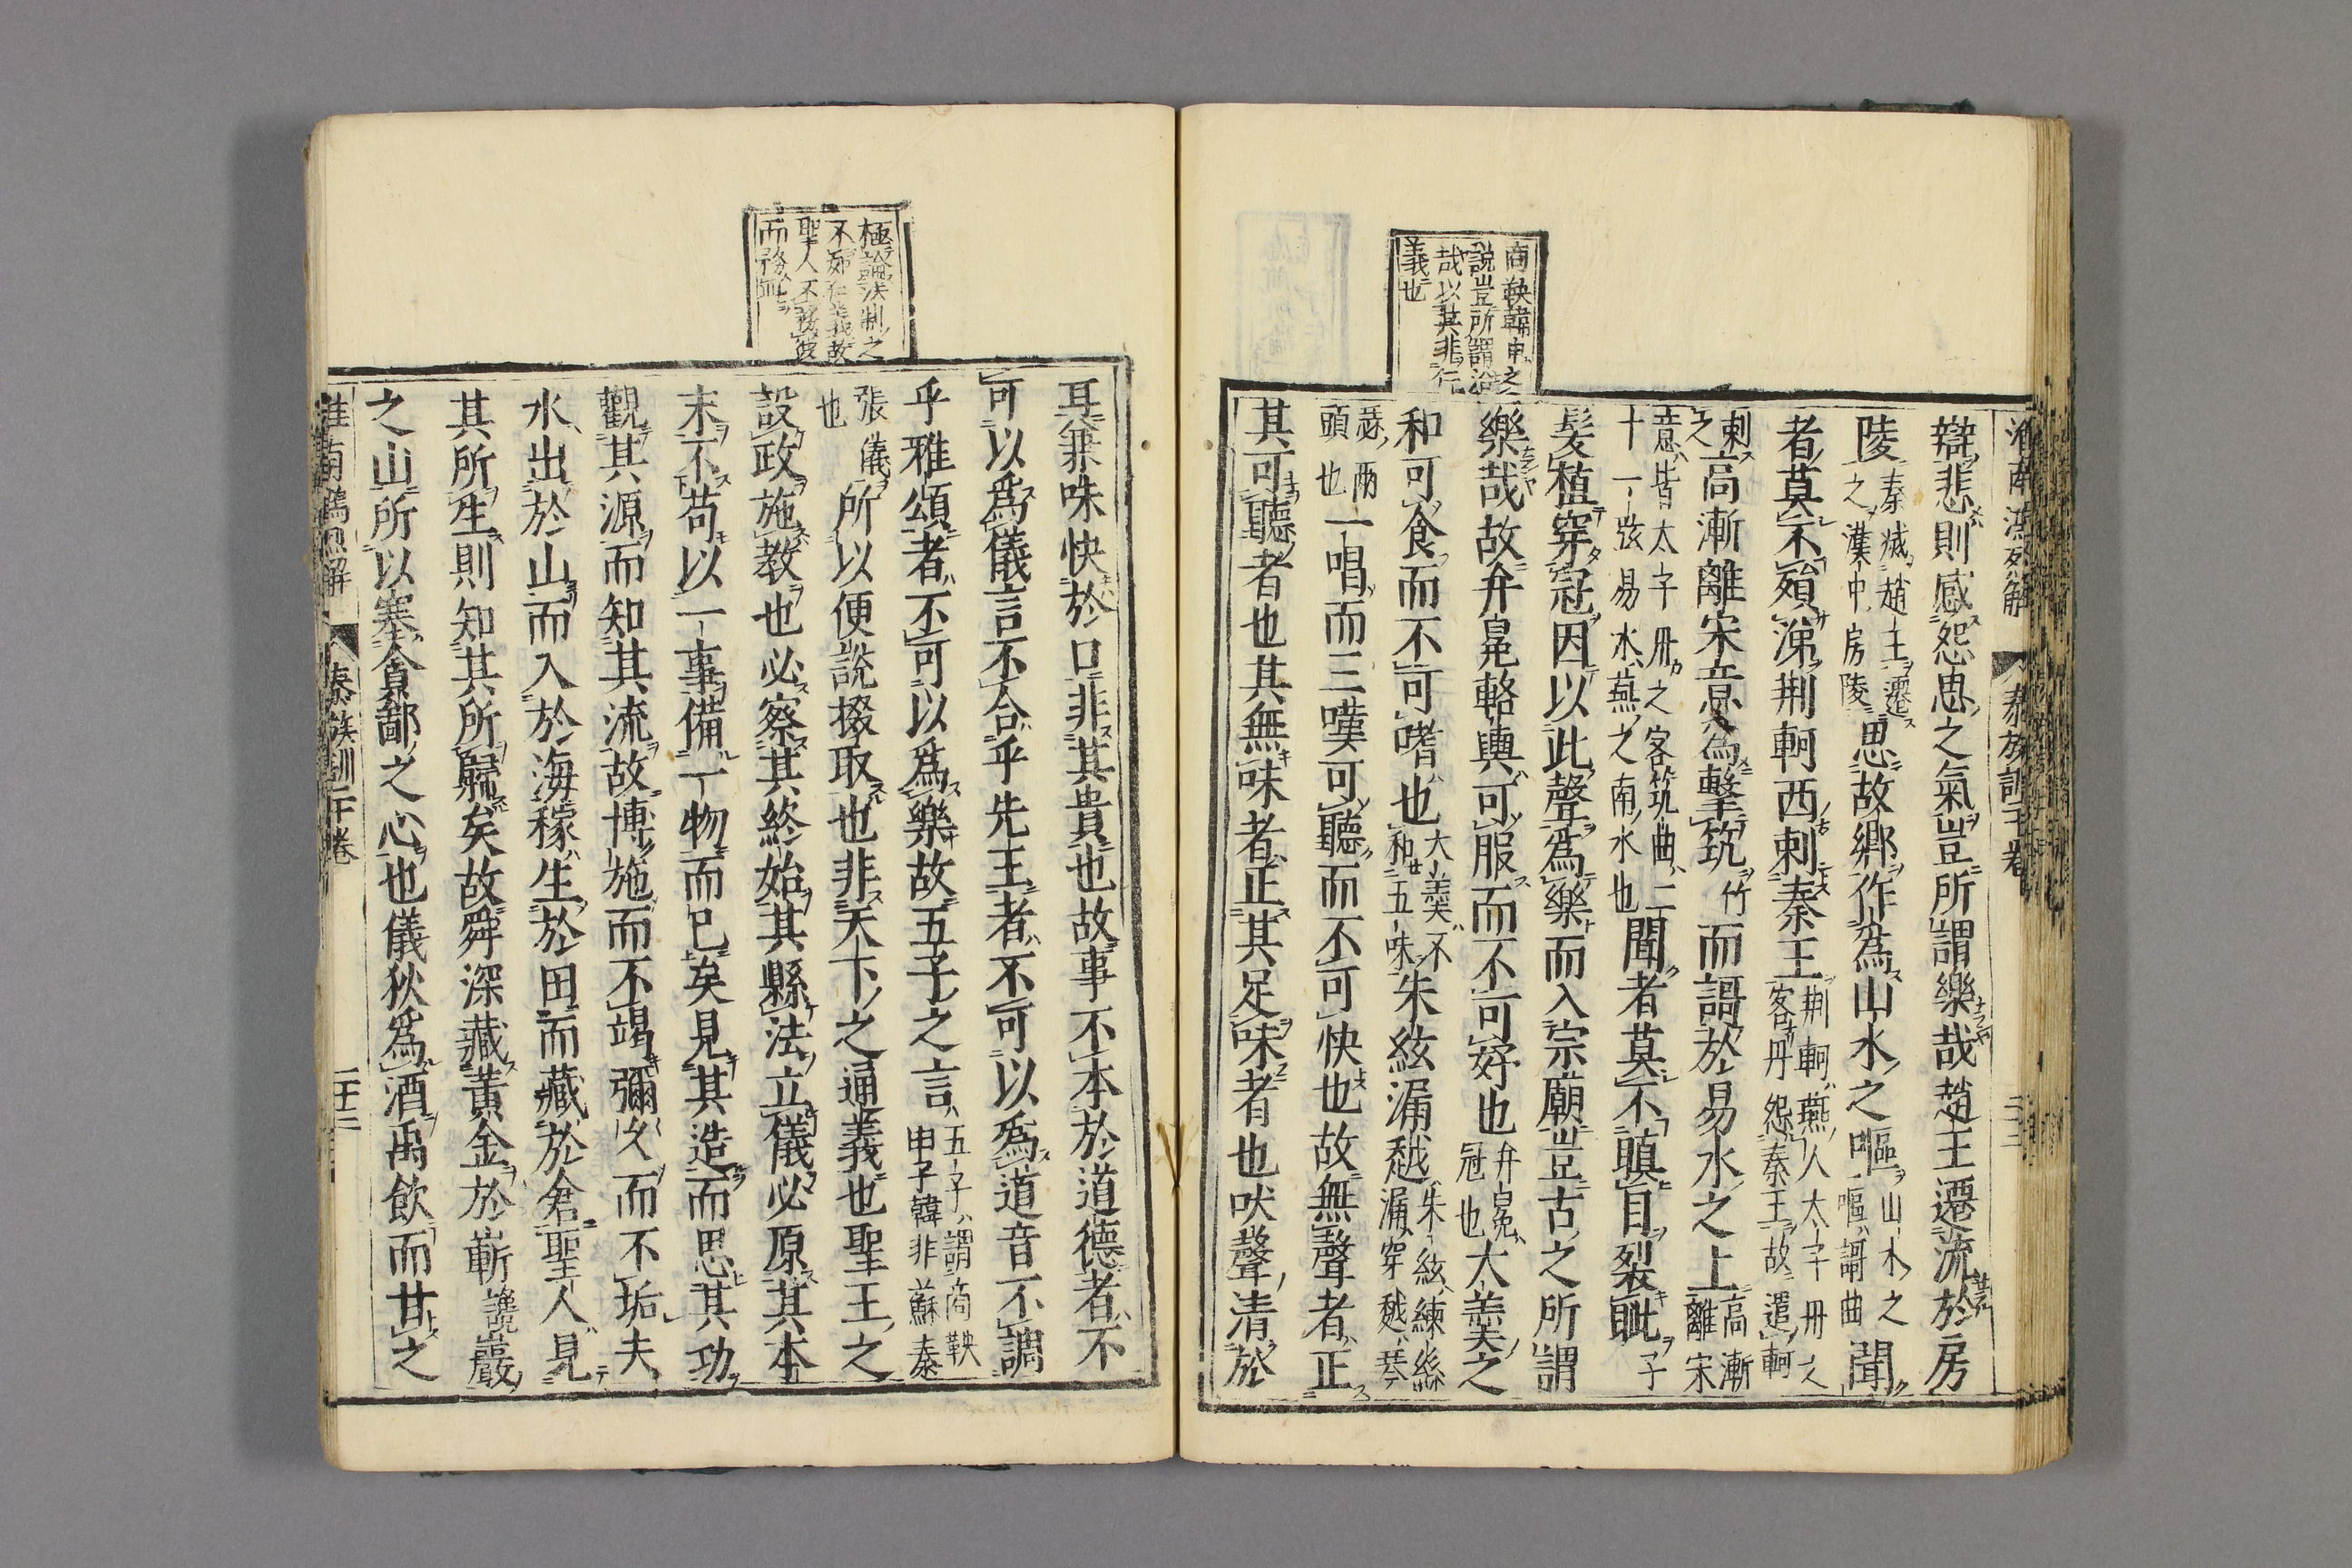 商鞅韓申之
說豈所謂治
哉以其非仁
義也
淮南鴻烈解 泰族訓二十卷
辯悲則感怨思之氣豈所謂樂哉趙王遷流於房
陵秦滅趙王遷之漢中房陵思故鄉作爲山水之嘔山水之嘔謌曲聞
者莫不殞涕荆軻西刺秦王荆軻燕人太子丹之客丹怨秦王故遣軻
刺之高漸離宋意爲擊筑竹而謌於易水之上高漸離宋
意皆太子丹之客筑曲二十一弦易水燕之南水也聞者莫不瞋目裂眦子
髮植穿冠因以此聲爲樂而入宗廟豈古之所謂
樂哉故弁冕輅輿可服而不可好也弁冕冠也大羹之
和可食而不可嗜也大羹不和五味朱絃漏越朱絃練絲漏穿越琴
瑟兩頭也一唱而三嘆可聽而不可快也故無聲者正
其可聽者也其無味者正其足味者也吠聲清於
極論法制之
不如仁義故
聖人不務彼
而務此
耳兼味快於口非其貴也故事不本於道德者不
可以爲儀言不合乎先王者不可以爲道音不調
乎雅頌者不可以爲樂故五子之言五子謂商鞅申子韓非蘇秦
張儀也所以便說掇取也非天下之通義也聖王之
設政施教也必察其終始其縣法立儀必原其本
末不苟以一事備一物而已矣見其造而思其功
觀其源而知其流故博施而不竭彌久而不垢夫
水出於山而入於海稼生於田而藏於倉聖人見
其所生則知其所歸矣故舜深藏黃金於嶄巖
之山所以塞貪鄙之心也儀狄爲酒禹飲而甘之
淮南鴻烈解 泰族訓二十卷 二十二